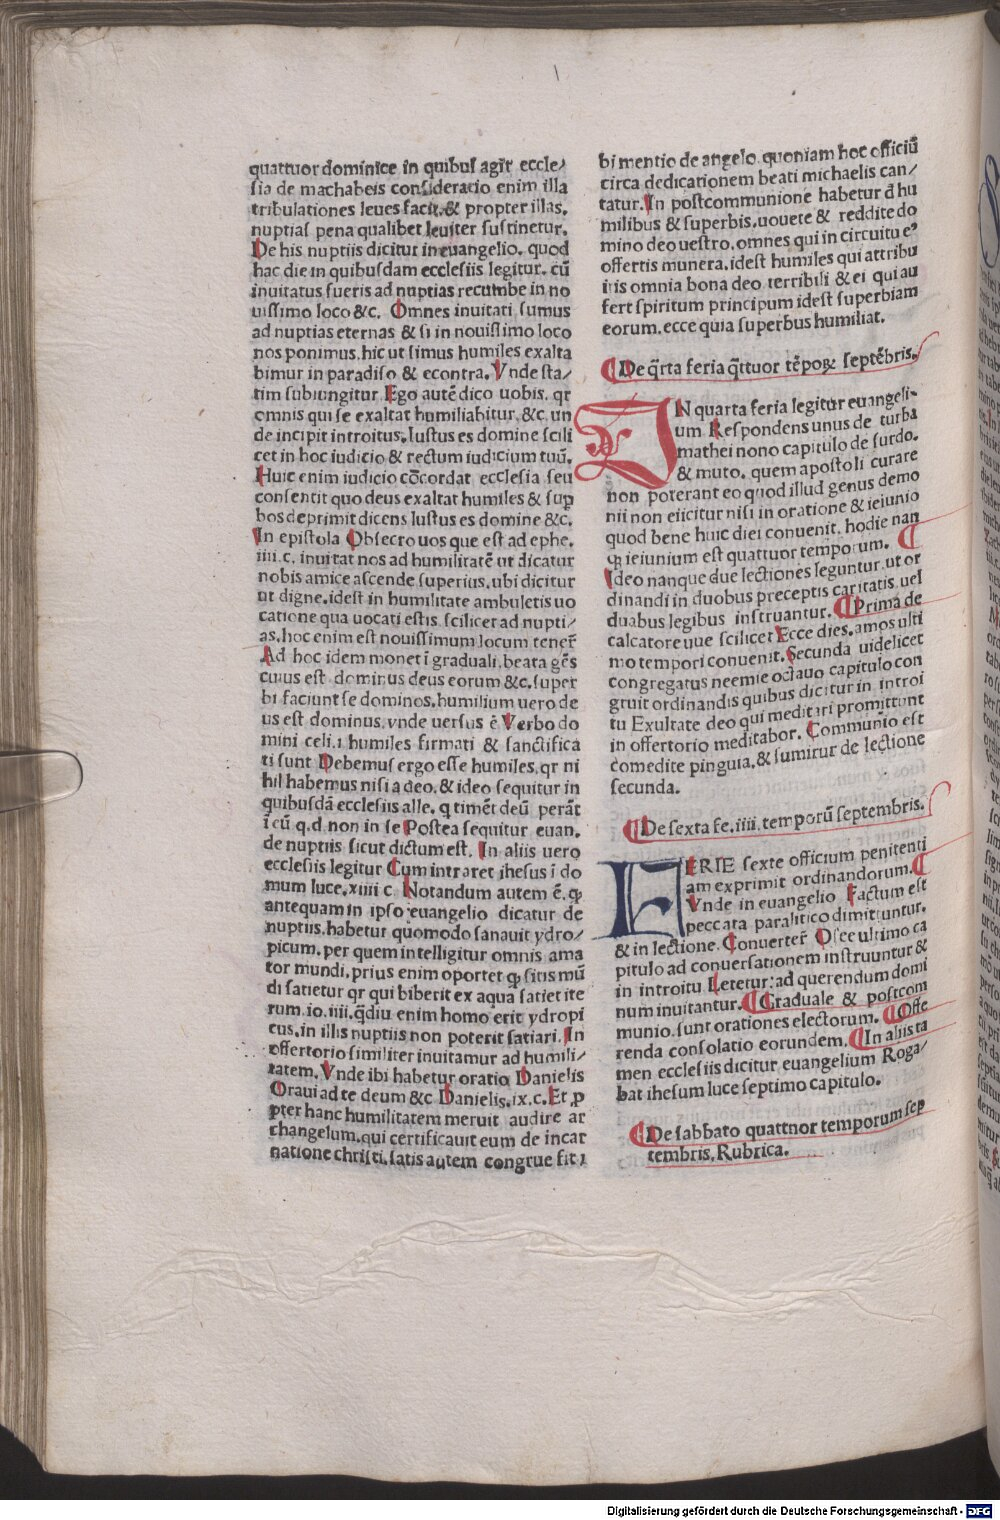 quattuor dominice in quibus agit̄ eccle/
sia de machabeis consideratio enim illa
tribulationes leues facit. & propter illas.
nuptias pena qualibet leuiter sustinetur.
De his nuptiis dicitur in euangelio. quod
hac die in quibusdam ecclesiis legitur. cū
inuitatus fueris ad nuptias recumbe in no
uissimo loco &c. Omnes inuitati sumus
ad nuptias eternas & si in nouissimo loco
nos ponimus. hic ut simus humiles exalta
bimur in paradiso & econtra. Vnde sta/
tim subiungitur Ego autē dico uobis. qr
omnis qui se exaltat humiliabitur. &c. un
de incipit introitus. Iustus es domine scili
cet in hoc iudicio & rectum iudicium tuū.
Huic enim iudicio cōcordat ecclesia seu
consentit quo deus exaltat humiles & suꝑ
bos deprimit dicens Iustus es domine &c.
In epistola Obsecro uos que est ad ephe.
iiii. c. inuitat nos ad humilitatē ut dicatur
nobis amice ascende superius. ubi dicitur
ut digne. idest in humilitate ambuletis uo
catione qua uocati estis scilicet ad nupti/
as. hoc enim est nouissimum locum tener̄
Ad hoc idem monet ī graduali. beata gēs
cuius est dominus deus eorum &c. super
bi faciunt se dominos. humilium uero de
us est dominus. vnde uersus ē Verbo do
mini celi. i humiles firmati & sanctifica
ti sunt Debemus ergo esse humiles. qr ni
hil habemus nisi a deo. & ideo sequitur in
quibusdā ecclesiis alle. q timēt deū perāt
ī eū q. d. non in se Postea sequitur euan.
de nuptiis sicut dictum est. In aliis uero
ecclesiis legitur Cum intraret ihesus ī do
mum luce. xiiii c. Notandum autem ē. ꝙ
antequam in ipso euangelio dicatur de
nuptiis. habetur quomodo sanauit ydro/
picum. per quem intelligitur omnis ama
tor mundi. prius enim oportet ꝙ sitis mū
di satietur qr qui biberit ex aqua satiet ite
rum. io. iiii. q̄diu enim homo erit ydropi
cus. in illis nuptiis non poterit satiari. In
offertorio similiter inuitamur ad humili/
tatem. Vnde ibi habetur oratio Danielis
Oraui ad te deum &c Danielis. ix. c. Et ꝓ
pter hanc humilitatem meruit audire ar
changelum. qui certificauit eum de incar
natione christi. satis autem congrue fit i
bi mentio de angelo. quoniam hoc officiū
circa dedicationem beati michaelis can/
tatur. In postcommunione habetur đ hu
milibus & superbis. uouete & reddite do
mino deo uestro. omnes qui in circuitu eꝰ
offertis munera. idest humiles qui attribu
itis omnia bona deo terribili & ei qui au
fert spiritum principum idest superbiam
eorum. ecce quia superbus humiliat.
¶De q̄rta feria q̄ttuor tēpoꝝ septēbris.
IN quarta feria legitur euangeli-
um Respondens unus de turba
mathei nono capitulo de surdo.
& muto. quem apostoli curare
non poterant eo quod illud genus demo
nii non eiicitur nisi in oratione & ieiunio
quod bene huic diei conuenit. hodie nan
ꝙ ieiunium est quattuor temporum. ¶
Ideo nanque due lectiones leguntur. ut or
dinandi in duobus preceptis caritatis uel
duabus legibus instruantur. ¶Prima de
calcatore uue scilicet Ecce dies. amos ulti
mo tempori conuenit. Secunda uidelicet
congregatus neemie octauo capitulo con
gruit ordinandis quibus dicitur in introi
tu Exultate deo qui meditari promittunt
in offertorio meditabor. Communio est
comedite pinguia. & sumitur de lectione
secunda.
¶De sexta fe. iiii. temporū septembris.
FERIE sexte officium penitenti
am exprimit ordinandorum. ¶
Vnde in euangelio Factum est
peccata paralitico dimittuntur.
& in lectione. Conuerter̄ Osee ultimo ca
pitulo ad conuersationem instruuntur &
in introitu Letetur: ad querendum domi
num inuitantur. ¶Graduale & postcom
munio. sunt orationes electorum. ¶Offe
renda consolatio eorundem. ¶In aliis ta
men ecclesiis dicitur euangelium Roga/
bat ihesum luce septimo capitulo.
¶De sabbato quattnor temporum sep
tembris. Rubrica.
Digitalisierung gefördert durch die Deutsche Forschungsgemeinschaft - DFG